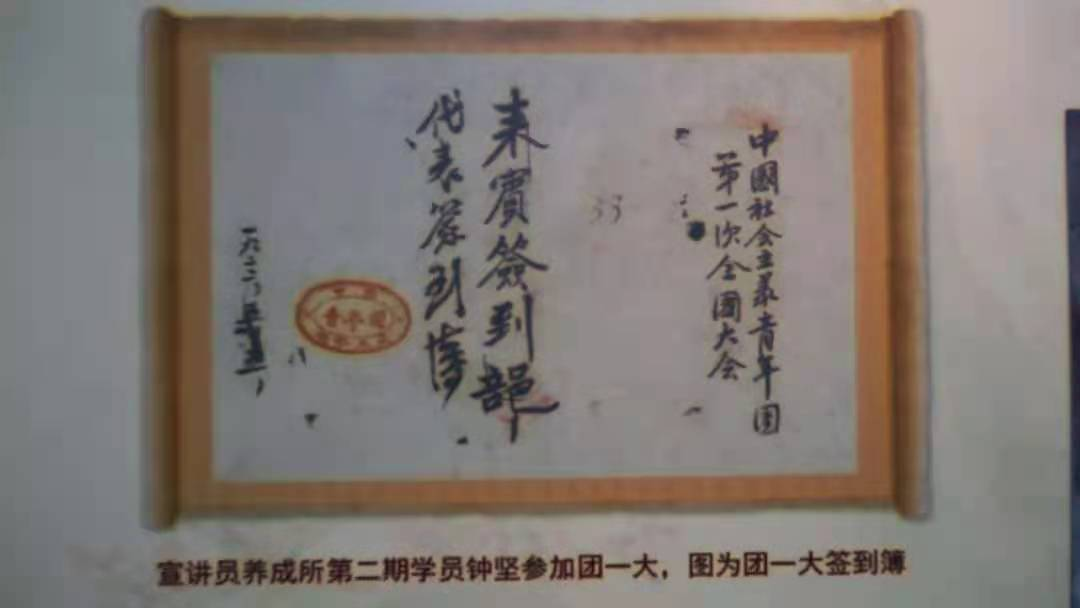 中國社会主义青年团
第一次全國大会
来賓簽到部
代表签到簿
青年团
宣讲员养成所第二期学员钟坚参加团一大，图为团一大签到簿